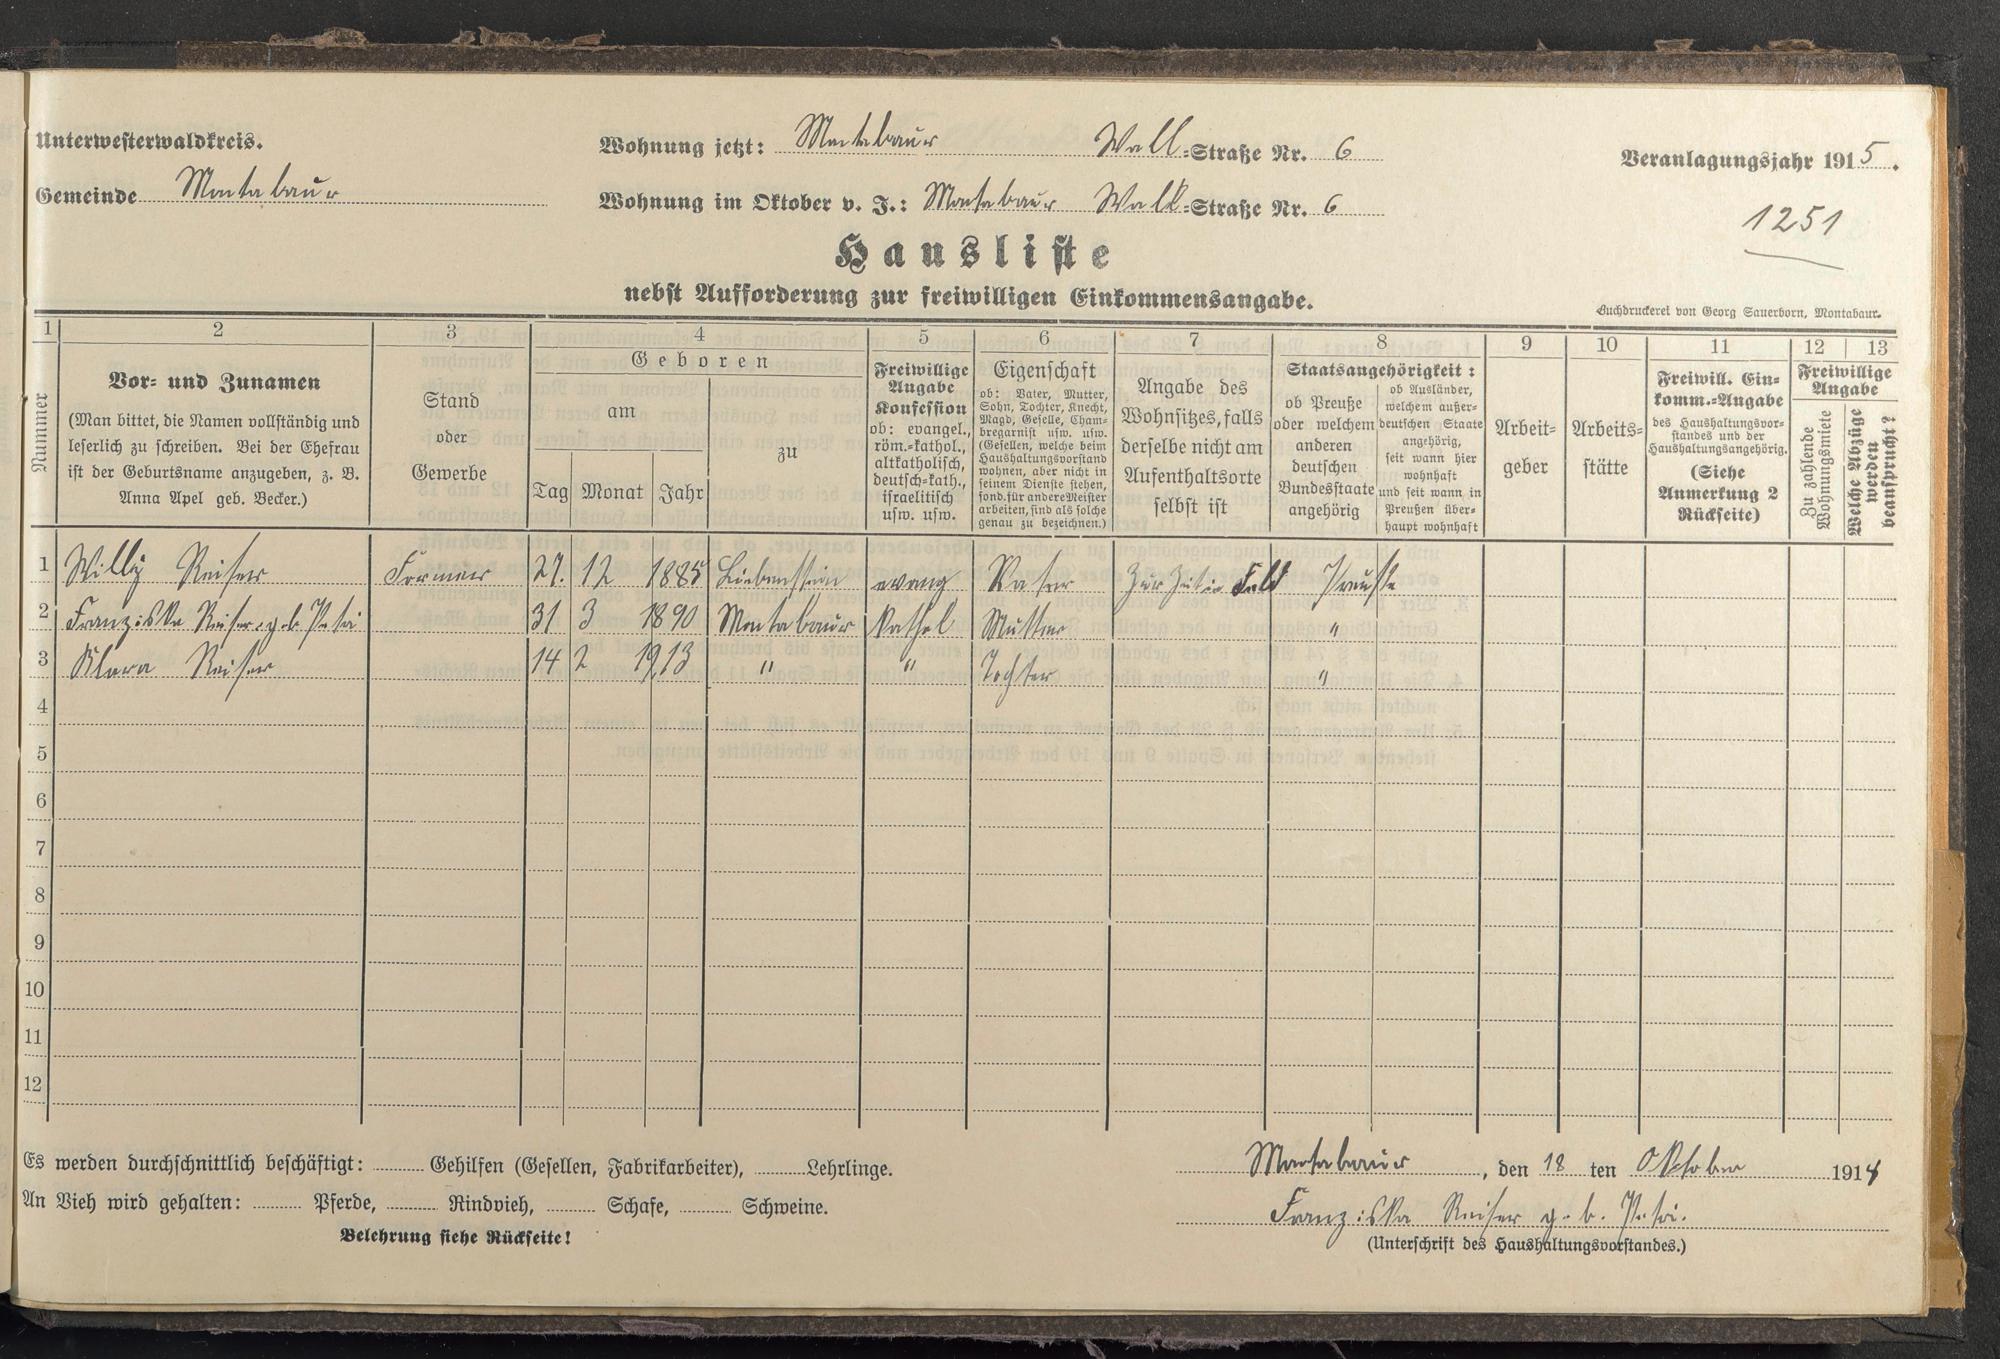 Unterwesterwaldkreis.
Gemeinde Montabaur
Wohnung jetzt: Montabaur Wall-Straße Nr. 6
Wohnung im Oktober v. J.: Montabaur Wall-Straße Nr. 6
Veranlagungsjahr 1915.
1251
Hausliste
nebst Aufforderung zur freiwilligen Einkommensangabe.
Buchdruckerei von Georg Sauerborn, Montabaur.
1 2 3 4 5 6 7 8 9 10 11 12 13
Nummer
Vor- und Zunamen
(Man bittet, die Namen vollständig und
leserlich zu schreiben. Bei der Ehefrau
ist der Geburtsname anzugeben, z. B.
Anna Apel geb. Becker.)
Stand
oder
Gewerbe
Geboren
am
Tag Monat Jahr
zu
Freiwillige
Angabe
Konfession
ob: evangel.,
röm.-kathol.,
altkatholisch,
deutsch-kath.,
israelitisch
usw. usw.
Eigenschaft
ob: Vater, Mutter,
Sohn, Tochter, Knecht,
Magd, Geselle, Cham-
bregarnist usw. usw.
(Gesellen, welche beim
Haushaltungsvorstand
wohnen, aber nicht in
seinem Dienste stehen,
sond. für andere Meister
arbeiten, sind als solche
genau zu bezeichnen.)
Angabe des
Wohnsitzes, falls
derselbe nicht am
Aufenthaltsorte
selbst ist
Staatsangehörigkeit:
ob Preuße
oder welchem
anderen
deutschen
Bundesstaate
angehörig
ob Ausländer,
welchem außer-
deutschen Staate
angehörig,
seit wann hier
wohnhaft
und seit wann in
Preußen über-
haupt wohnhaft
Arbeit-
geber
Arbeits-
stätte
Freiwill. Ein-
komm.-Angabe
des Haushaltungsvor-
standes und der
Haushaltungsangehörig.
(Siehe
Anmerkung 2
Rückseite)
Freiwillige
Angabe
Zu zahlende
Wohnungsmiete
Welche Abzüge
werden
beansprucht?
1 Willy Reiser Former 27. 12 1885 Liebenstein evang Vater Zur Zeit im Feld Preuße
2 Franziska Reiser geb Petri 31 3 1890 Montabaur Kathol Mutter "
3 Klara Reiser 14 2 1913 " " Tochter "
4
5
6
7
8
9
10
11
12
Es werden durchschnittlich beschäftigt: Gehilfen (Gesellen, Fabrikarbeiter), Lehrlinge.
An Vieh wird gehalten: Pferde, Rindvieh, Schafe, Schweine.
Belehrung siehe Rückseite!
Montabaur, den 18 ten Oktober 1914
Franziska Reiser geb. Petri.
(Unterschrift des Haushaltungsvorstandes.)